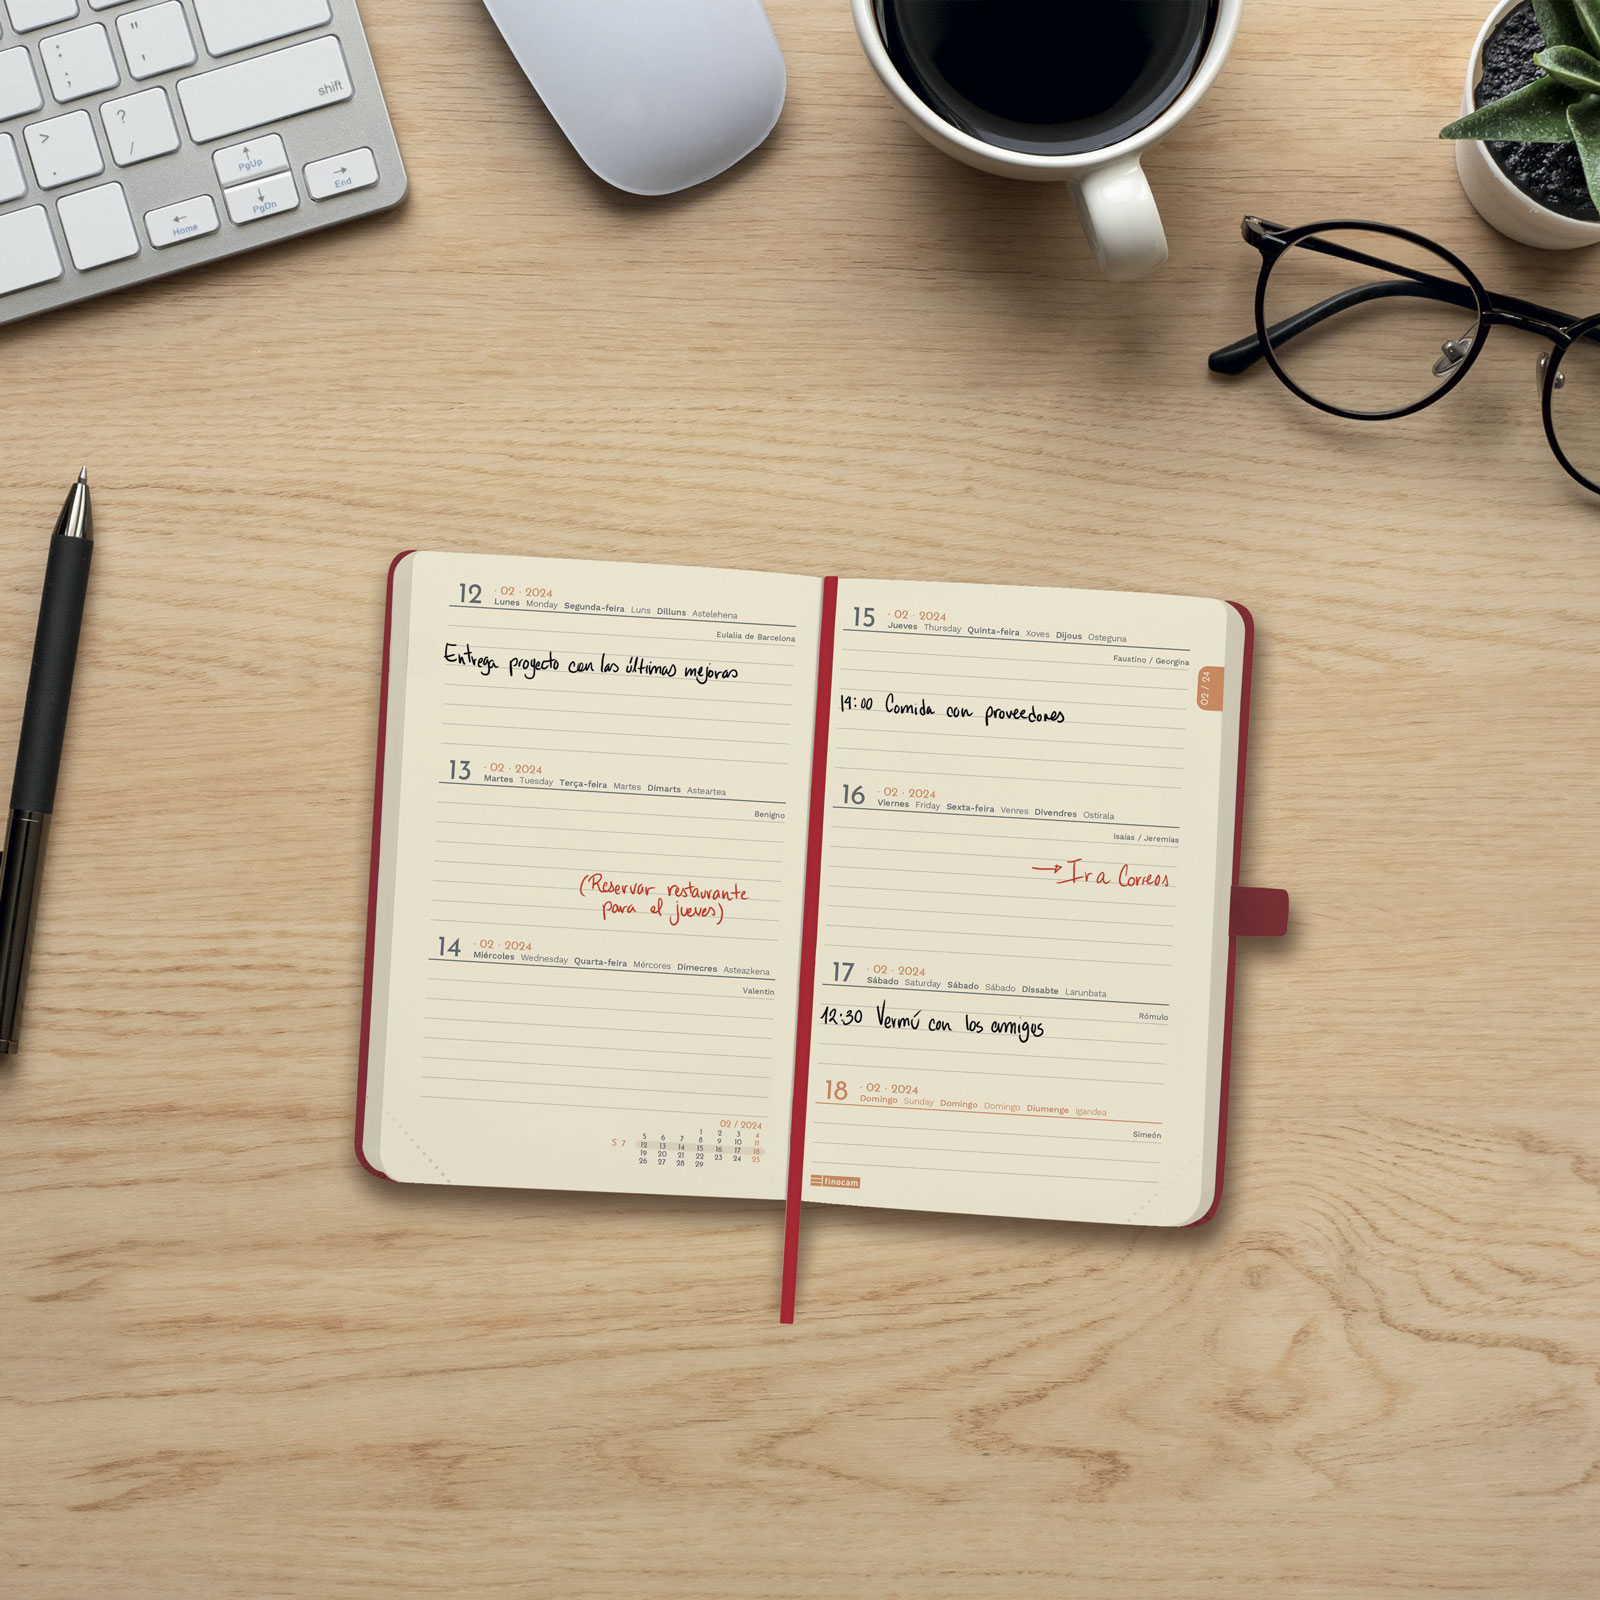 " '
: ;
shift
> .
? /
↑ PgUp
→ End
← Home
↓ PgDn
12 · 02 · 2024
Lunes Monday Segunda-feira Luns Dilluns Astelehena
Eulalia de Barcelona
Entrega proyecto con las últimas mejoras
13 · 02 · 2024
Martes Tuesday Terça-feira Martes Dimarts Asteartea
Benigno
(Reservar restaurante
para el jueves)
14 · 02 · 2024
Miércoles Wednesday Quarta-feira Mércores Dimecres Asteazkena
Valentín
02 / 2024
1 2 3 4
5 6 7 8 9 10 11
S. 7 12 13 14 15 16 17 18
19 20 21 22 23 24 25
26 27 28 29
15 · 02 · 2024
Jueves Thursday Quinta-feira Xoves Dijous Osteguna
Faustino / Georgina
02 / 24
14:00 Comida con proveedores
16 · 02 · 2024
Viernes Friday Sexta-feira Venres Divendres Ostirala
Isaías / Jeremías
→ Ir a Correos
17 · 02 · 2024
Sábado Saturday Sábado Sábado Dissabte Larunbata
Rómulo
12:30 Vermú con los amigos
18 · 02 · 2024
Domingo Sunday Domingo Domingo Diumenge Igandea
Simeón
finocam